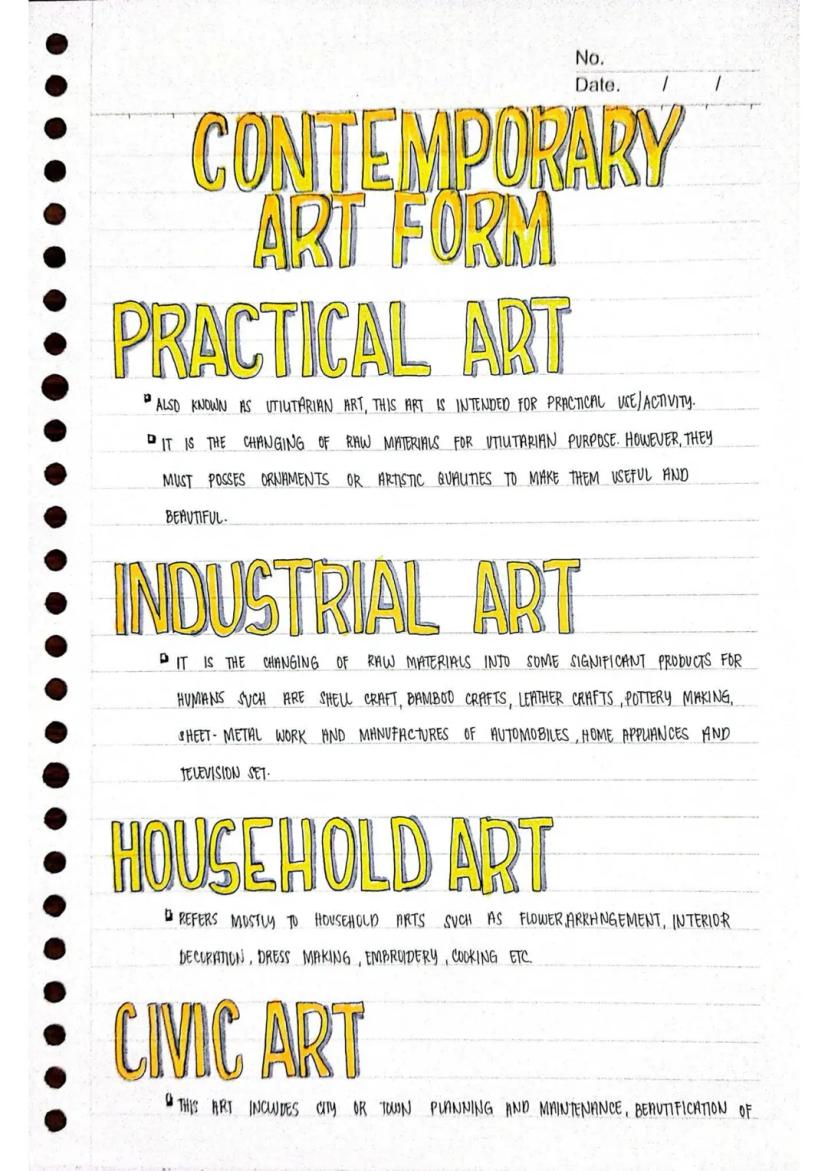 No.
Date. / /
CONTEMPORARY
ART FORM
PRACTICAL ART
ALSO KNOWN AS UTILITARIAN ART, THIS ART IS INTENDED FOR PRACTICAL USE/ACTIVITY.
IT IS THE CHANGING OF RAW MATERIALS FOR UTILITARIAN PURPOSE. HOWEVER, THEY
MUST POSSES ORNAMENTS OR ARTISTIC QUALITIES TO MAKE THEM USEFUL AND
BEAUTIFUL.
INDUSTRIAL ART
IT IS THE CHANGING OF RAW MATERIALS INTO SOME SIGNIFICANT PRODUCTS FOR
HUMANS SUCH ARE SHELL CRAFT, BAMBOO CRAFTS, LEATHER CRAFTS, POTTERY MAKING,
SHEET-METAL WORK AND MANUFACTURES OF AUTOMOBILES, HOME APPLIANCES AND
TELEVISION SET.
HOUSEHOLD ART
REFERS MOSTLY TO HOUSEHOLD ARTS SUCH AS FLOWER ARRANGEMENT, INTERIOR
DECORATION, DRESS MAKING, EMBROIDERY, COOKING ETC.
CIVIC ART
THIS ART INCLUDES CITY OR TOWN PLANNING AND MAINTENANCE, BEAUTIFICATION OF